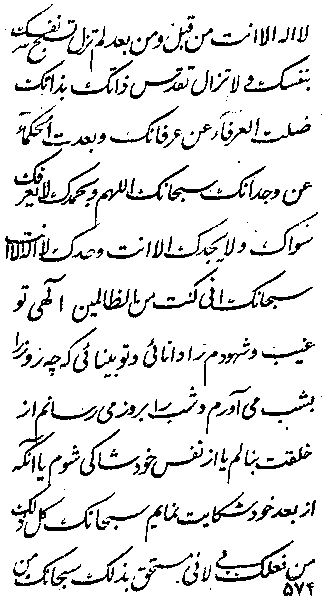 لا اله الا انت من قبل و من بعد لم تزل تسبح نفسک
بنفسک و لا تزال تقدس ذاتک بذاتک
ضلت العرفآء عن عرفانک و بعدت الحکمآء
عن وجدانک سبحانک اللهم و بحمدک لا یعرفک
سواک و لا یجدک الا انت وحدک لا اله الا انت
سبحانک انی کنت من الظالمین الهی تو
غیب و شهودم را دانائی و تو بینائی که چه روز را
بشب می آورم و شب را بروز می رسانم از
خلقت بنالم یا از نفس خود شاکی شوم یا آنکه
از بعد خود شکایت نمایم سبحانک کل ذلک
من فعلک فی لانی مستحق بذلک سبحانک من
۵۷۴